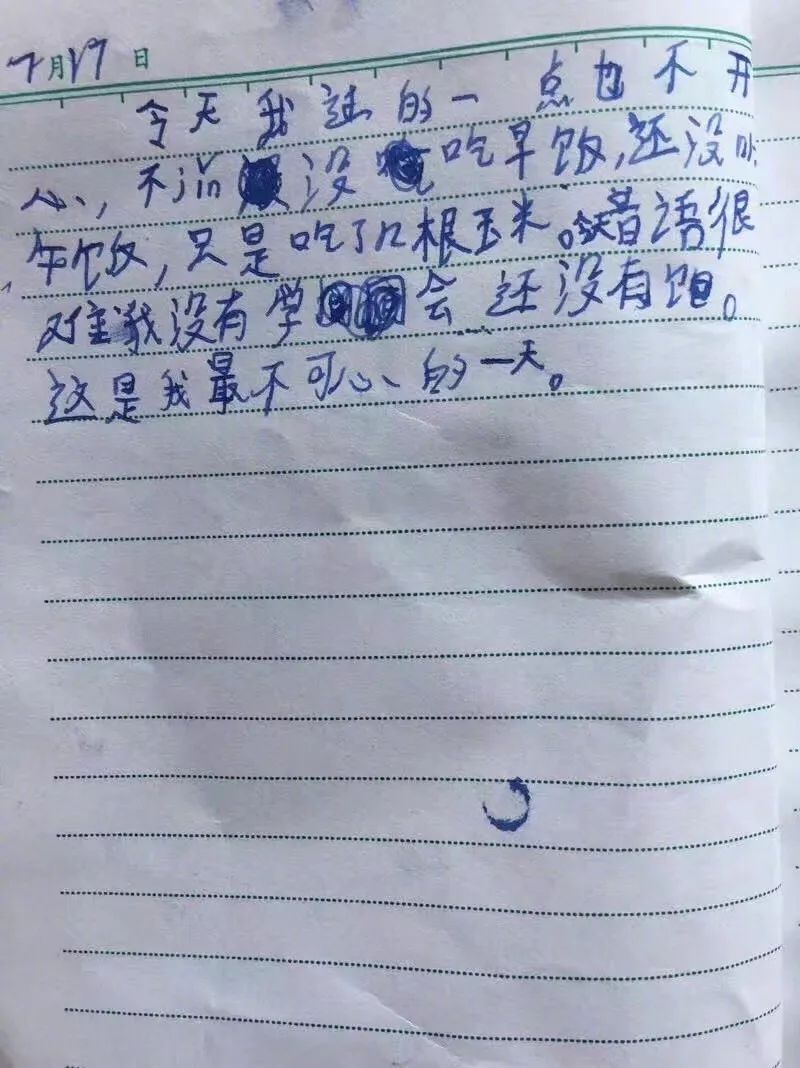 7月17日
今天我过的一点也不开
心，不诉没吃早饭，还没吃
午饭，只是吃了几根玉米。英语很
难我没有学会还没有饱。
这是我最不可心的一天。